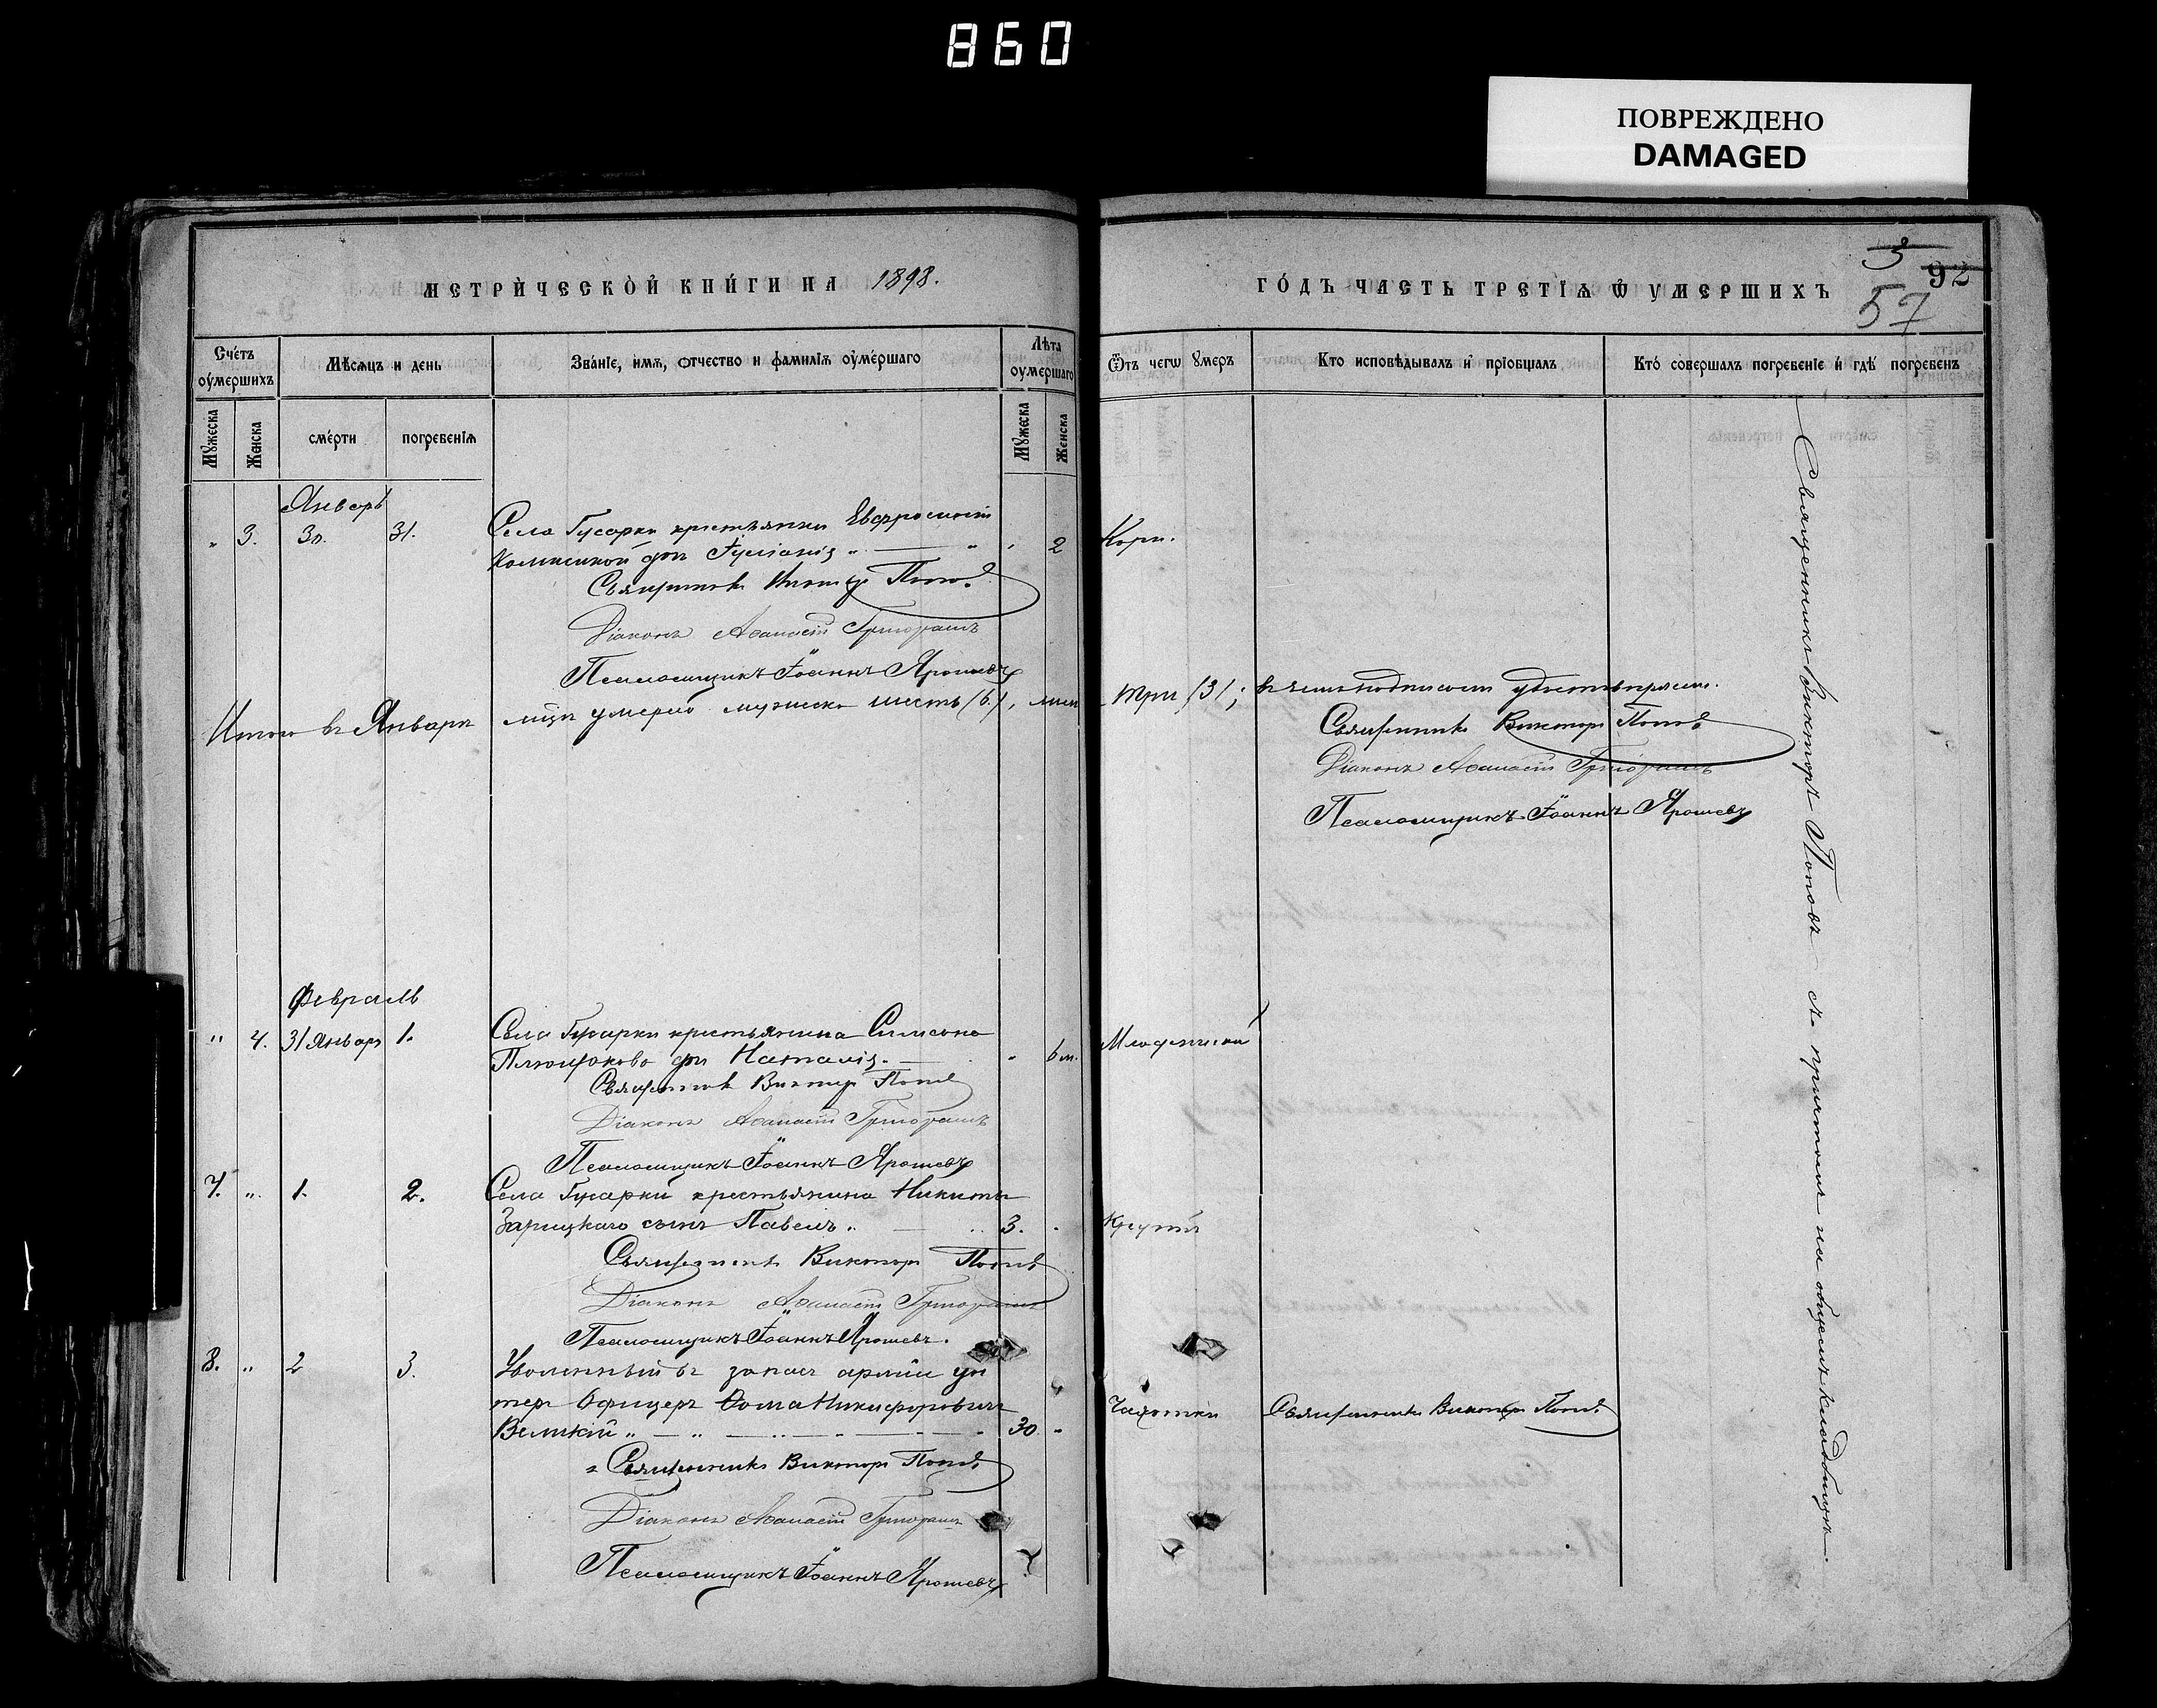 860
ПОВРЕЖДЕНО
DAMAGED
МЕТРИЧЕСКОЙ КНИГИ НА 1898.
Счетъ оумершихъ
Мѣсяцъ и день
Званіе, имя, отчество и фамилія оумершаго
Лѣта оумершаго
Мужеска
Женска
смерти
погребенія
Мужеска
Женска
Январь
" 3. 30. 31. Села Гусарки крестьянки Евфросиніи
дочь Іуліанія " — " " 2
Священникъ Викторъ Поповъ
Діаконъ Аѳанасій Григорашъ
Псаломщикъ Іоаннъ Ярошевъ
Итого въ Январѣ м-цѣ умерло мужеска шесть (6), жен
Февраль
" 4. 31 Января 1. Села Гусарки крестьянина Симеона
дочь Наталія. — " 6 м.
Священникъ Викторъ Поповъ
Діаконъ Аѳанасій Григорашъ
Псаломщикъ Іоаннъ Ярошевъ
7. " 1. 2. Села Гусарки крестьянина Никиты
Зарицкаго сынъ Павелъ " — " 3. "
Священникъ Викторъ Поповъ
Діаконъ Аѳанасій Григорашъ
Псаломщикъ Іоаннъ Ярошевъ.
8. " 2 3. Уволенный въ запасъ арміи ун
теръ Офицеръ Ѳома Никифоровичъ
Великій " — " — " — " 30. "
Священникъ Викторъ Поповъ
Діаконъ Аѳанасій Григорашъ
Псаломщикъ Іоаннъ Ярошевъ
3
92
57
ГОДЪ ЧАСТЬ ТРЕТІЯ Ѡ УМЕРШИХЪ
Ѿтъ чегѡ умеръ
Кто исповѣдывалъ и пріобщалъ
Кто совершалъ погребеніе и гдѣ погребенъ
Кори.
три (3); въ чемъ подписомъ удостовѣряемъ.
Священникъ Викторъ Поповъ
Діаконъ Аѳанасій Григорашъ
Псаломщикъ Іоаннъ Ярошевъ
Младенческой
Чахотки
Священникъ Викторъ Поповъ
Священникъ Викторъ Поповъ съ причтомъ на общемъ кладбищѣ.